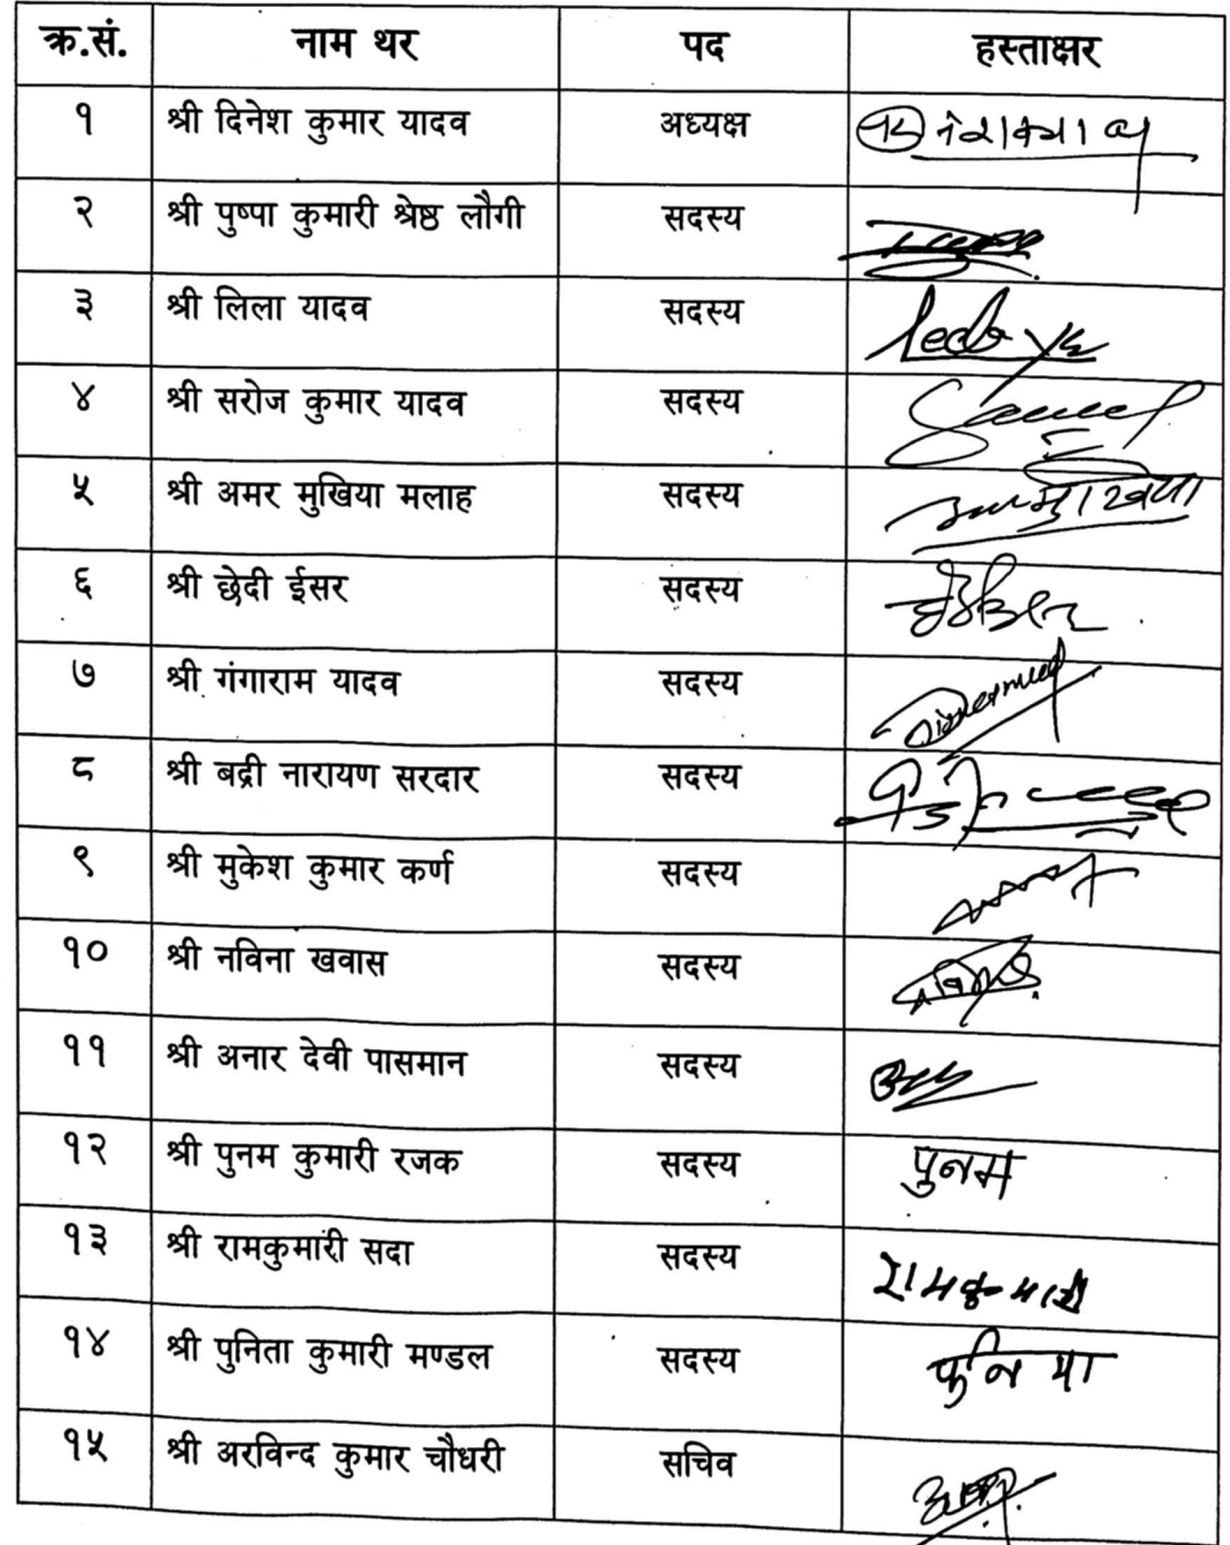 क्र.सं. नाम थर पद हस्ताक्षर
१ श्री दिनेश कुमार यादव अध्यक्ष
२ श्री पुष्पा कुमारी श्रेष्ठ लौगी सदस्य
३ श्री लिला यादव सदस्य
४ श्री सरोज कुमार यादव सदस्य
५ श्री अमर मुखिया मलाह सदस्य
६ श्री छेदी ईसर सदस्य
७ श्री गंगाराम यादव सदस्य
८ श्री बद्री नारायण सरदार सदस्य
९ श्री मुकेश कुमार कर्ण सदस्य
१० श्री नविना खवास सदस्य
११ श्री अनार देवी पासमान सदस्य
१२ श्री पुनम कुमारी रजक सदस्य पुनम
१३ श्री रामकुमारी सदा सदस्य रामकुमारी
१४ श्री पुनिता कुमारी मण्डल सदस्य
१५ श्री अरविन्द कुमार चौधरी सचिव